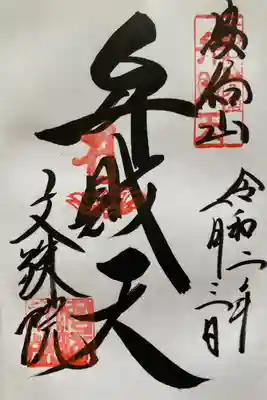 安倍山
令和二年
月三日
弁財天
文殊院